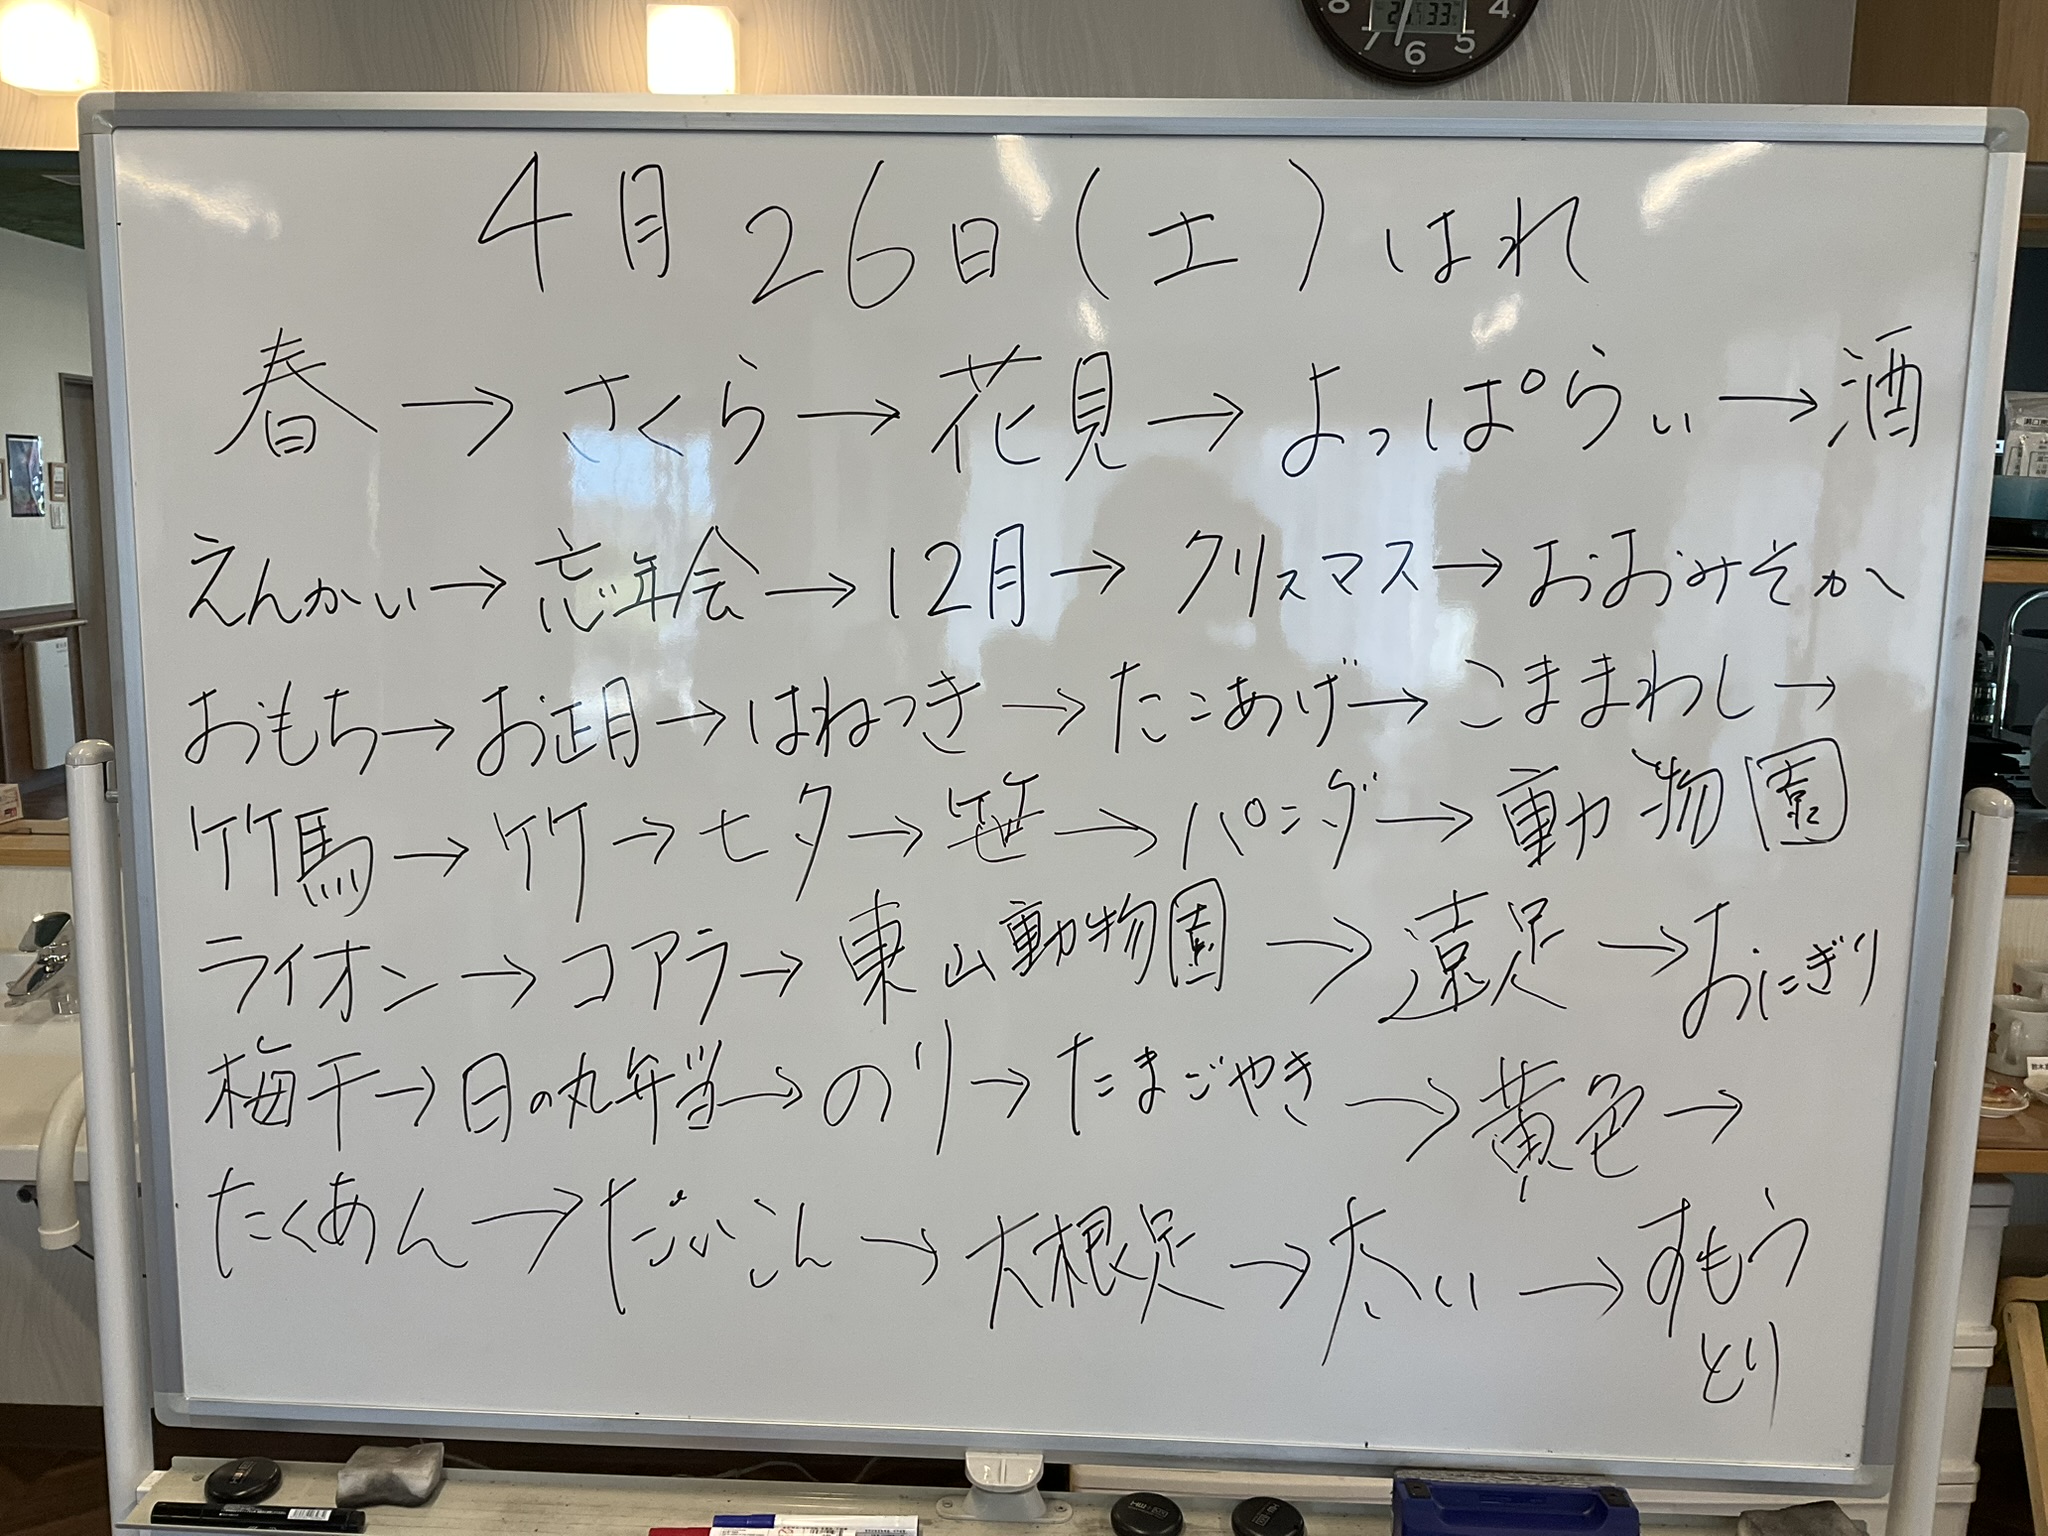 4月26日(土)はれ
春→さくら→花見→よっぱらい→酒
えんかい→忘年会→12月→クリスマス→おおみそか
おもち→お正月→はねつき→たこあげ→こままわし→
竹馬→竹→七夕→笹→パンダ→動物園
ライオン→コアラ→東山動物園→遠足→おにぎり
梅干→日の丸弁当→のり→たまごやき→黄色→
たくあん→だいこん→大根足→太い→すもう
とり
8 4
7 6 5